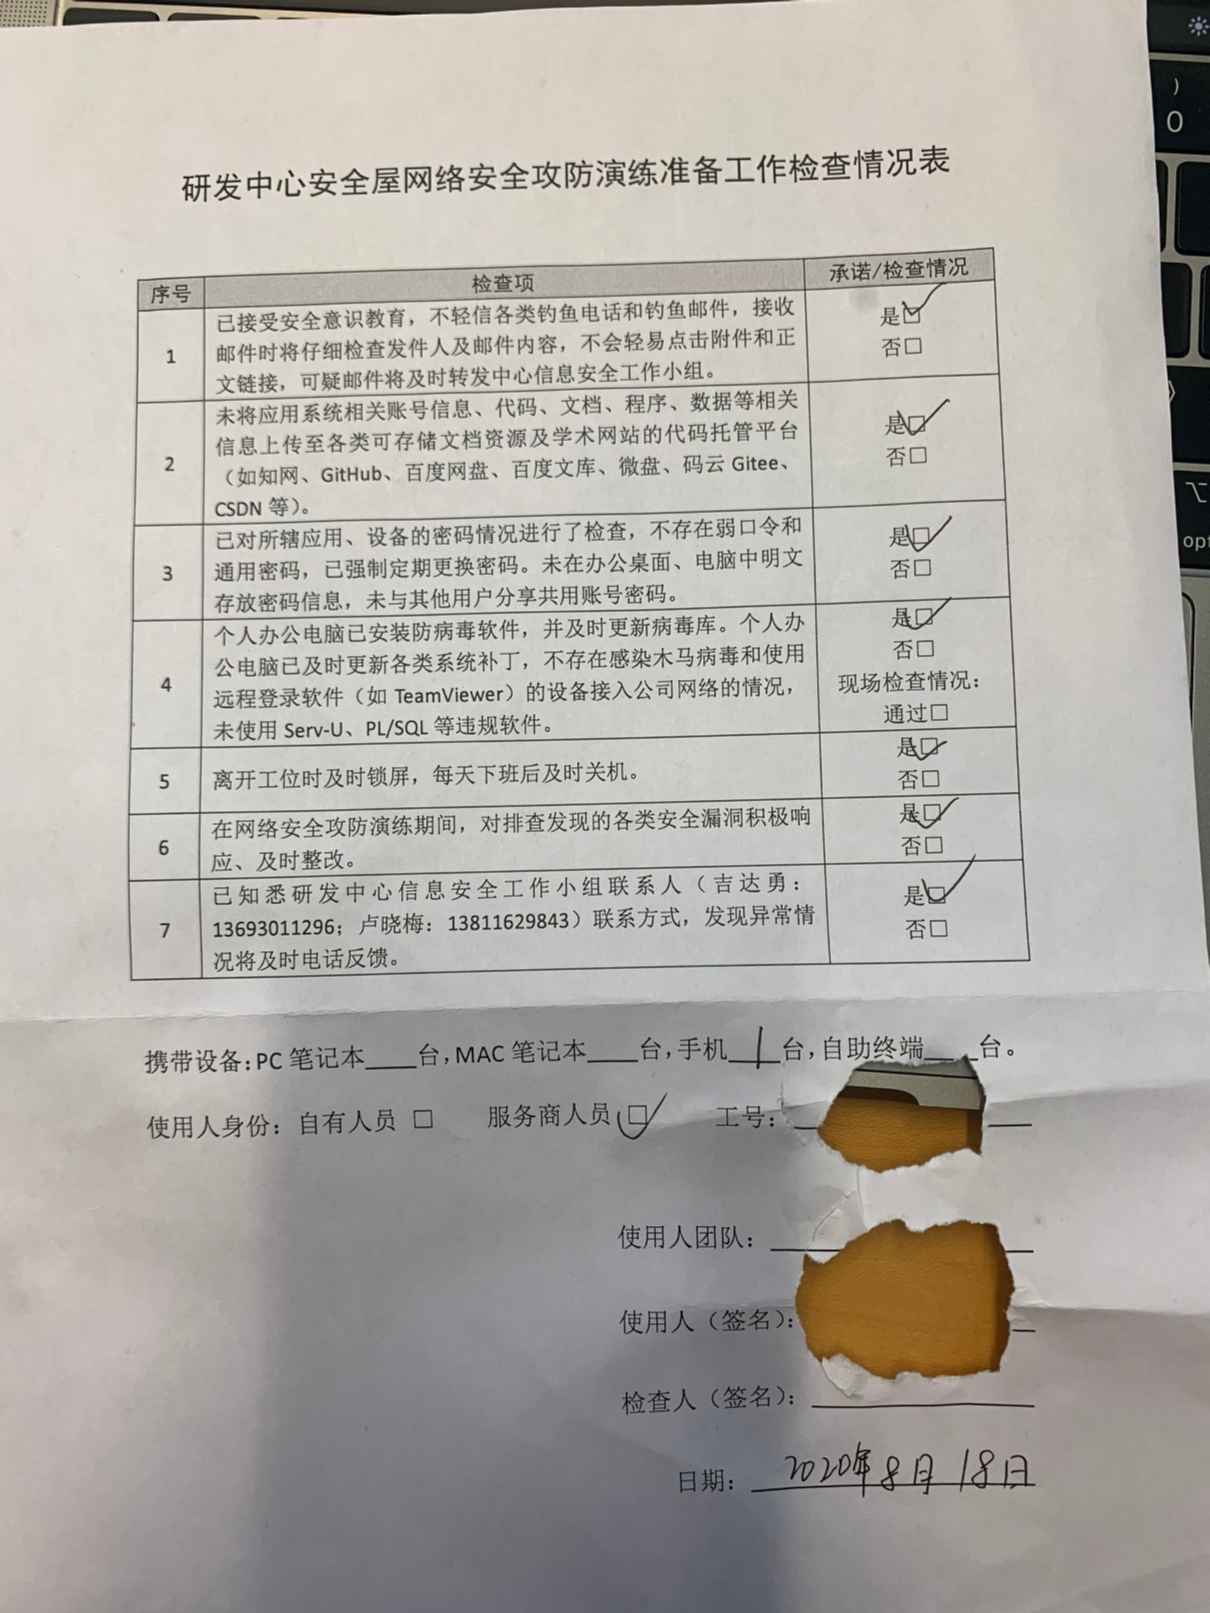 研发中心安全屋网络安全攻防演练准备工作检查情况表
序号 检查项 承诺/检查情况
1
已接受安全意识教育，不轻信各类钓鱼电话和钓鱼邮件，接收
邮件时将仔细检查发件人及邮件内容，不会轻易点击附件和正
文链接，可疑邮件将及时转发中心信息安全工作小组。
是☑
否□
2
未将应用系统相关账号信息、代码、文档、程序、数据等相关
信息上传至各类可存储文档资源及学术网站的代码托管平台
（如知网、GitHub、百度网盘、百度文库、微盘、码云 Gitee、
CSDN 等）。
是☑
否□
3
已对所辖应用、设备的密码情况进行了检查，不存在弱口令和
通用密码，已强制定期更换密码。未在办公桌面、电脑中明文
存放密码信息，未与其他用户分享共用账号密码。
是☑
否□
4
个人办公电脑已安装防病毒软件，并及时更新病毒库。个人办
公电脑已及时更新各类系统补丁，不存在感染木马病毒和使用
远程登录软件（如 TeamViewer）的设备接入公司网络的情况，
未使用 Serv-U、PL/SQL 等违规软件。
是☑
否□
现场检查情况：
通过□
5
离开工位时及时锁屏，每天下班后及时关机。
是☑
否□
6
在网络安全攻防演练期间，对排查发现的各类安全漏洞积极响
应、及时整改。
是☑
否□
7
已知悉研发中心信息安全工作小组联系人（吉达勇：
13693011296；卢晓梅：13811629843）联系方式，发现异常情
况将及时电话反馈。
是☑
否□
携带设备：PC 笔记本____台，MAC 笔记本____台，手机 1 台，自助终端____台。
使用人身份：自有人员 □ 服务商人员 ☑ 工号：
使用人团队：
使用人（签名）：
检查人（签名）：
日期：2020年8月18日
)
0
opt